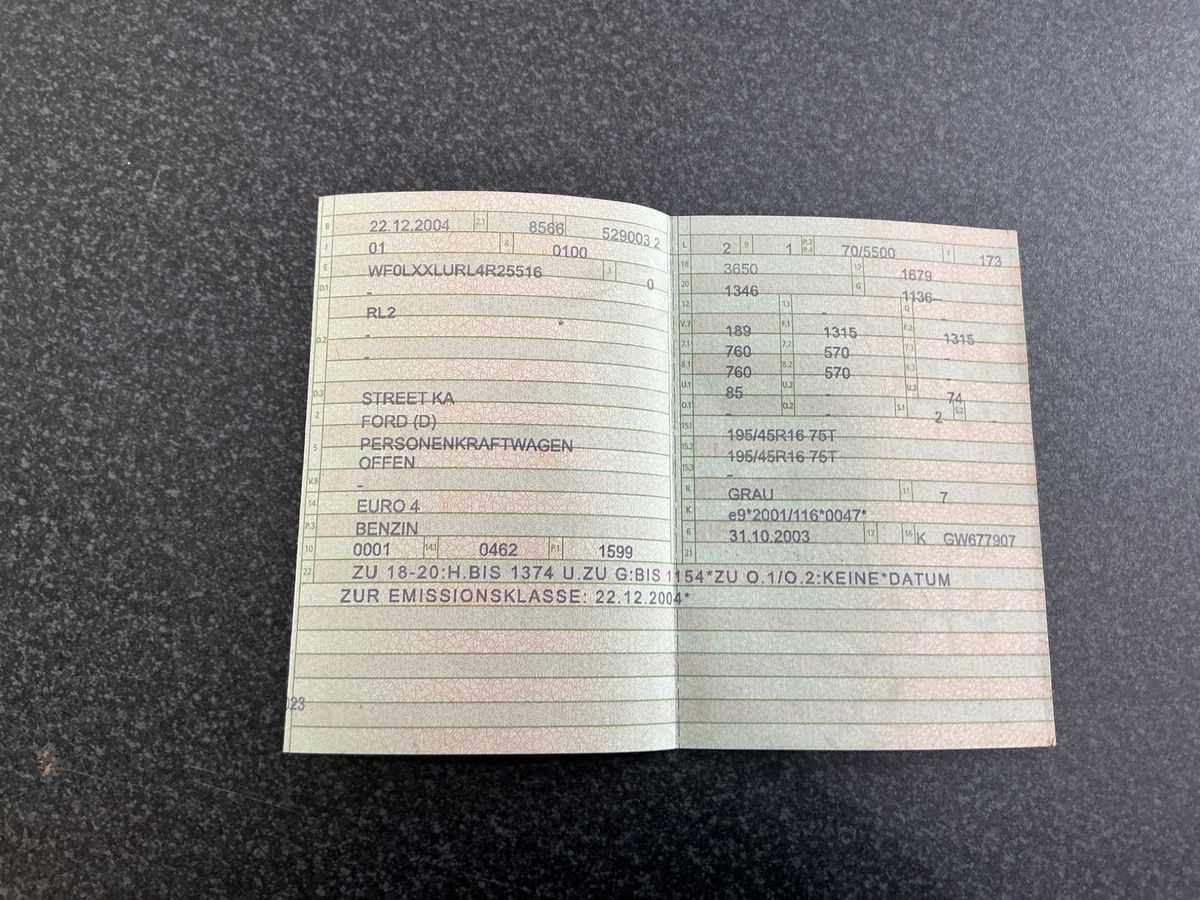 B 22.12.2004 2.1 8566 529003 2
J 01 4 0100
E WF0LXXLURL4R25516 3 0
D.1 -
RL2
D.2 -
-
D.3 STREET KA
2 FORD (D)
5 PERSONENKRAFTWAGEN
OFFEN
V.9 -
14 EURO 4
P.3 BENZIN
10 0001 14.1 0462 P.1 1599
22 ZU 18-20:H.BIS 1374 U.ZU G:BIS 1154*ZU O.1/O.2:KEINE*DATUM
ZUR EMISSIONSKLASSE: 22.12.2004*
023
L 2 9 1 P.2 P.4 70/5500 T 173
18 3650 19 1679
20 1346 G 1136-
12 - 13 - Q -
V.7 189 F.1 1315 F.2 1315
7.1 760 7.2 570 7.3 -
8.1 760 8.2 570 8.3 -
U.1 85 U.2 - U.3 74
O.1 - O.2 - S.1 2 S.2 -
15.1 195/45R16 75T
15.2 195/45R16 75T
15.3 -
R GRAU 11 7
K e9*2001/116*0047*
6 31.10.2003 17 16 K GW677907
21